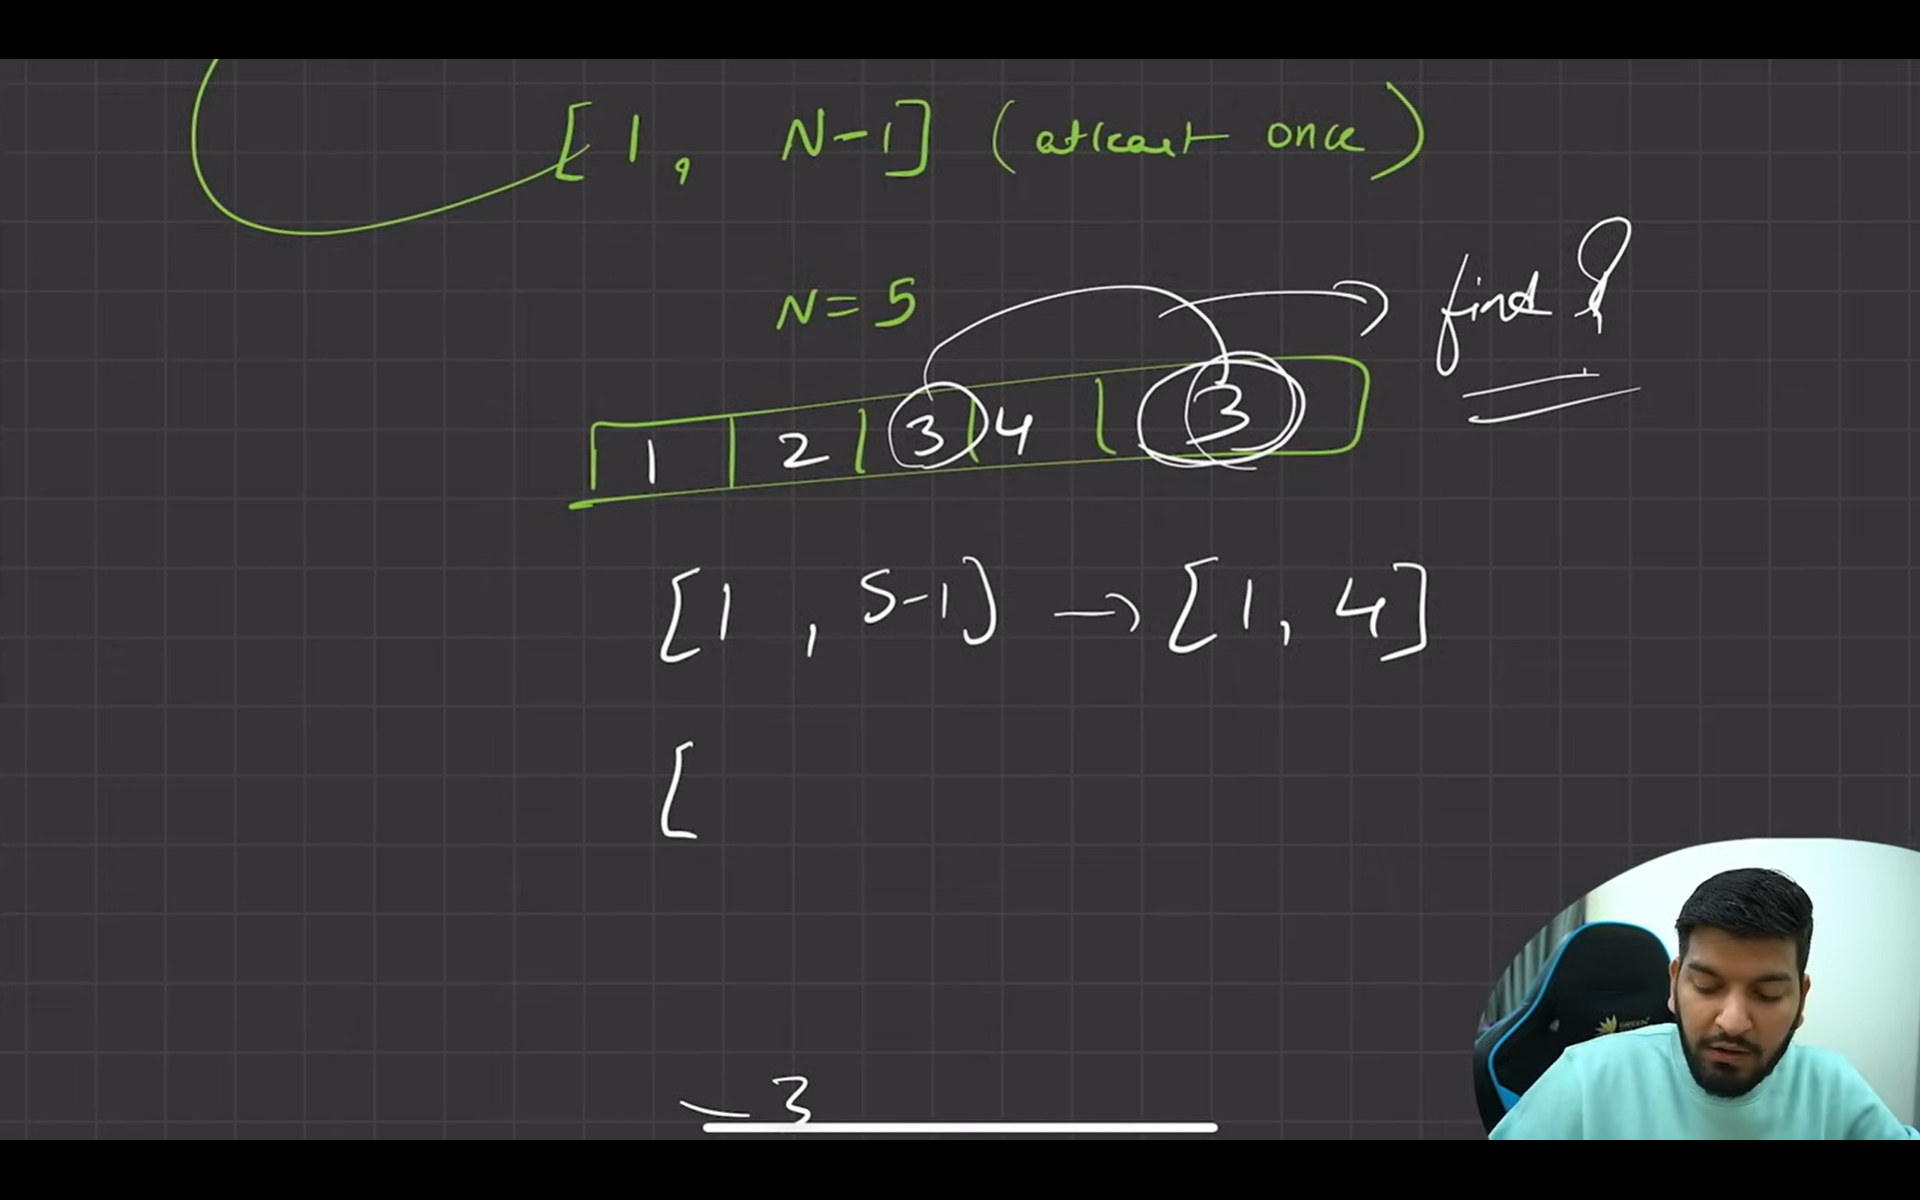 [1, N-1] (atleast once)
N=5
find ?
1 2 3 4 3
[1, 5-1] → [1, 4]
[
-3